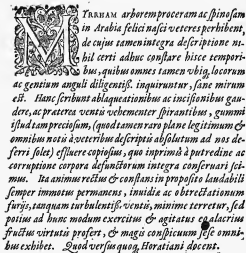 MYRRHAM arborem proceram ac spinosam
in Arabia felici nasci veteres perhibent,
de cujus tamen integra descriptione ni-
hil certi adhuc constare hisce tempori-
bus, quibus omnes tamen vbiq, locorum
ac gentium anguli diligentiß. inquiruntur, sane mirum
est. Hanc scribunt ablaqueationibus ac incisionibus gau-
dere, ac præterea ventis vehementer spirantibus, gummi
istud tam preciosum, (quod tamen raro plane legitimum &
omnibus notis à veteribus descriptis absolutum ad nos de-
ferri solet) effluere copiosius, quo inprimis à putredine ac
corruptione corpora defunctorum integra conservari sci-
mus. Ita animus rectus & constans in proposito laudabili
semper immotus permanens, invidiæ ac obtrectationum
furijs, tanquam turbulentiß. ventis, minime terretur, sed
potius ad hunc modum exercitus & agitatus eo alacrius
fructus virtutis profert, & magis conspicuum sese omni-
bus exhibet. Quod versus quoq, Horatiani docent.